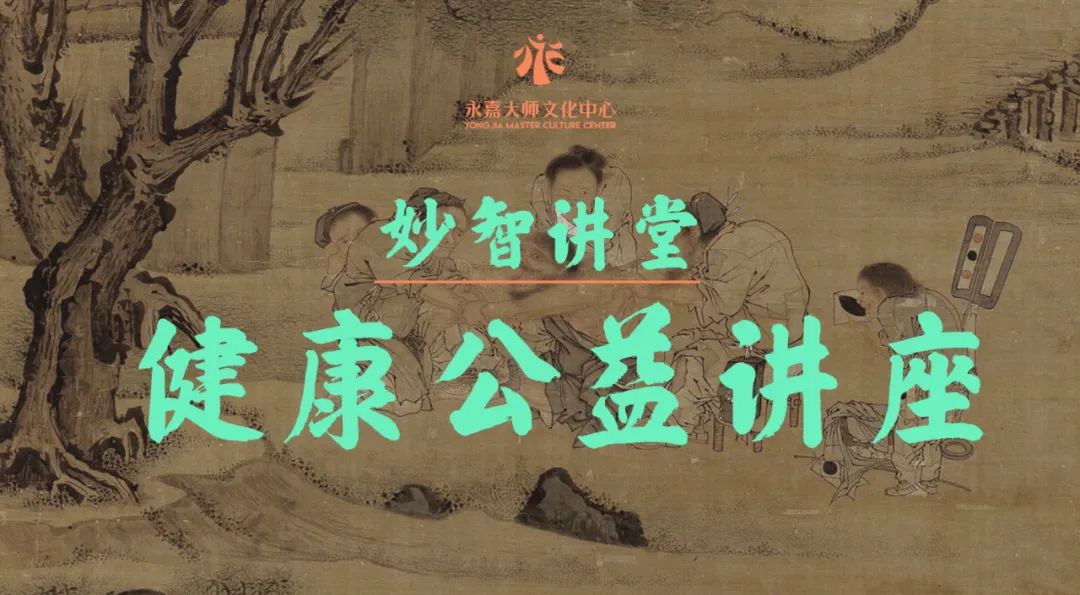 永嘉大师文化中心
YONG JIA MASTER CULTURE CENTER
妙智讲堂
健康公益讲座